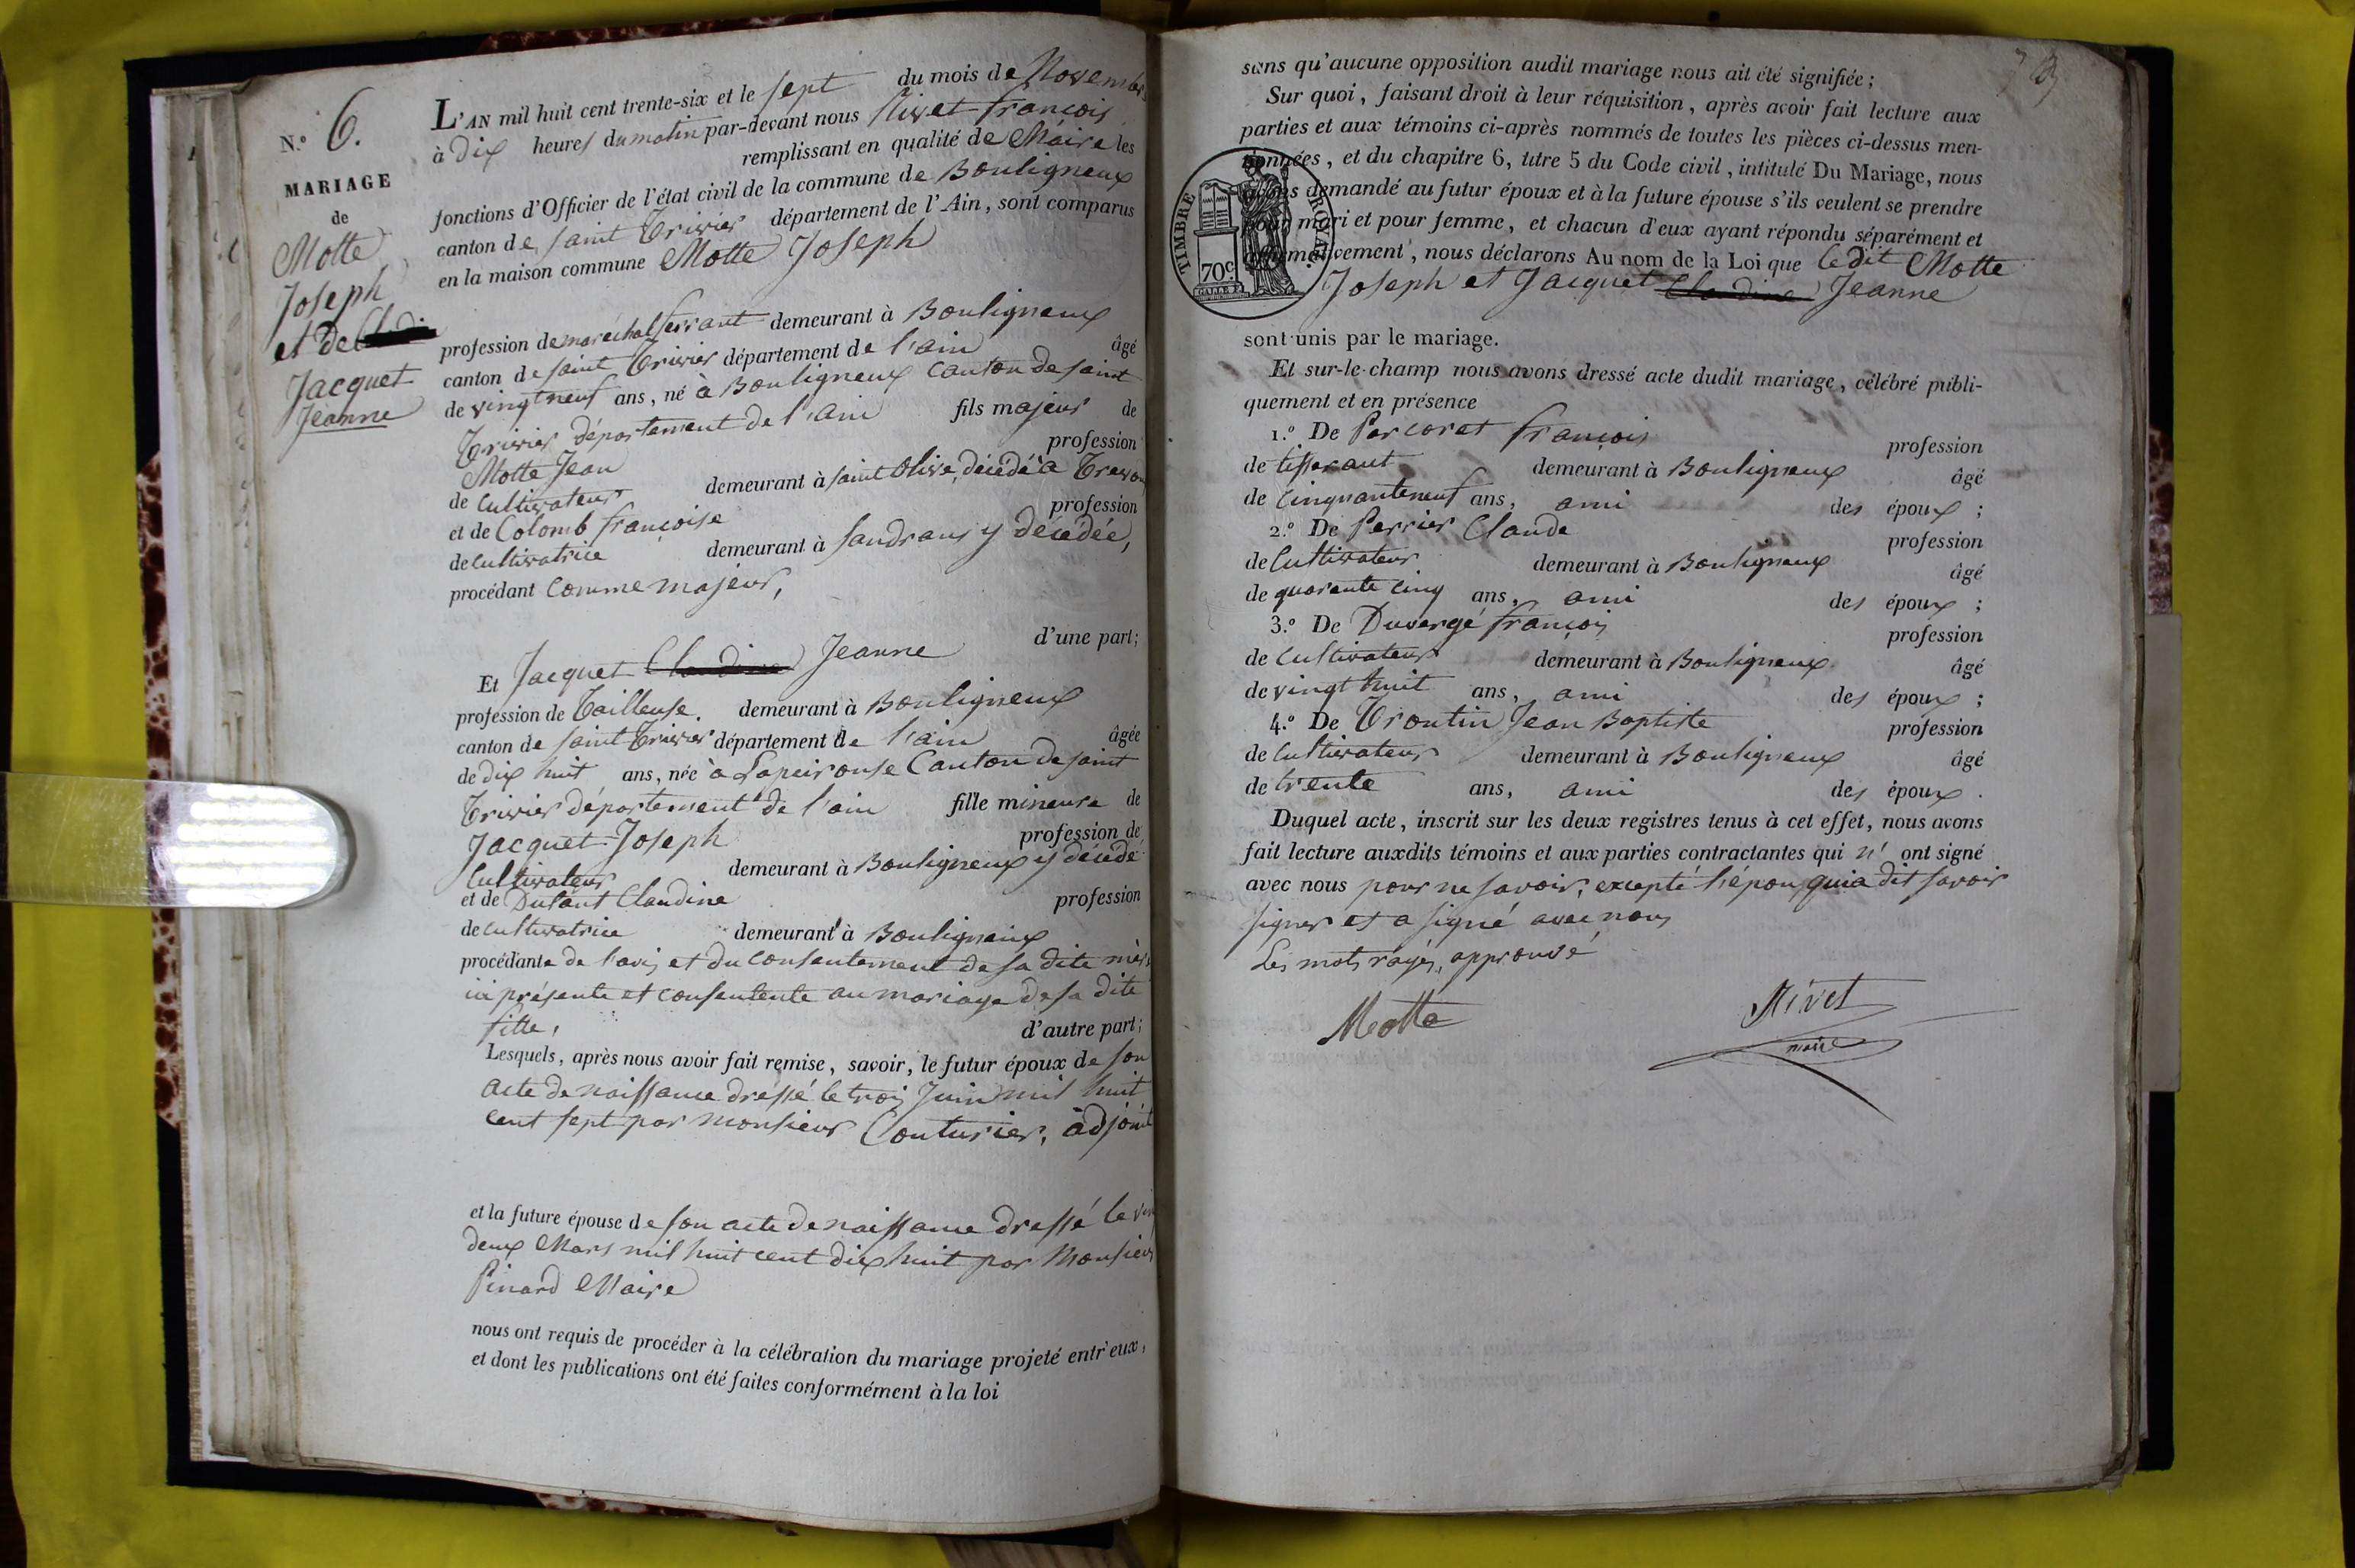 N.º 6.
MARIAGE
de
Motte
Joseph
et de
Jacquet
Jeanne
L'AN mil huit cent trente-six et le sept du mois de Novembre
à dix heures du matin par-devant nous Nivet françois
remplissant en qualité de Maire les
fonctions d'Officier de l'état civil de la commune de Bouligneux
canton de saint Trivier département de l'Ain, sont comparus
en la maison commune Motte Joseph
profession de maréchal ferrant demeurant à Bouligneux
canton de saint Trivier département de l'ain âgé
de vingt neuf ans, né à Bouligneux Canton de saint
Trivier département de l'ain fils majeur de
Motte Jean profession
de Cultivateur demeurant à saint Olive, décédé à Trevoux
et de Colomb françoise profession
de Cultivatrice demeurant à Sandrans y décédée,
procédant Comme majeur,
d'une part;
Et Jacquet Claudine Jeanne
profession de Tailleuse. demeurant à Bouligneux
canton de saint Trivier département de l'ain âgée
de dix huit ans, née à Lapeirouse Canton de saint
Trivier département de l'ain fille mineure de
Jacquet Joseph profession de
Cultivateur demeurant à Bouligneux y décédé
et de Dutant Claudine profession
de Cultivatrice demeurant à Bouligneux
procédante de l'avis et du consentement de sa dite mère
ici présente et consentente au mariage de sa dite
fille, d'autre part;
Lesquels, après nous avoir fait remise, savoir, le futur époux de son
acte de naissance dressé le trois Juin mil huit
cent sept par monsieur Couturier, adjoint
et la future épouse de son acte de naissance dressé le vingt
deux Mars mil huit cent dix huit par Monsieur
Pinard Maire
nous ont requis de procéder à la célébration du mariage projeté entr'eux,
et dont les publications ont été faites conformément à la loi
sans qu'aucune opposition audit mariage nous ait été signifiée;
Sur quoi, faisant droit à leur réquisition, après avoir fait lecture aux
parties et aux témoins ci-après nommés de toutes les pièces ci-dessus men-
tionnées, et du chapitre 6, titre 5 du Code civil, intitulé Du Mariage, nous
avons demandé au futur époux et à la future épouse s'ils veulent se prendre
pour mari et pour femme, et chacun d'eux ayant répondu séparément et
affirmativement, nous déclarons Au nom de la Loi que le dit Motte
Joseph et Jacquet Claudine Jeanne
TIMBRE ROYAL
70c
sont unis par le mariage.
Et sur-le-champ nous avons dressé acte dudit mariage, célébré publi-
quement et en présence
1.º De Porcoret françois profession
de tisserant demeurant à Bouligneux âgé
de Cinquanteneuf ans, ami des époux ;
2.º De Perrier Claude profession
de Cultivateur demeurant à Bouligneux âgé
de quarante cinq ans, ami des époux ;
3.º De Duvergé françois profession
de Cultivateur demeurant à Bouligneux âgé
de vingt huit ans, ami des époux ;
4.º De Trontin Jean Baptiste profession
de Cultivateur demeurant à Bouligneux âgé
de trente ans, ami des époux .
Duquel acte, inscrit sur les deux registres tenus à cet effet, nous avons
fait lecture auxdits témoins et aux parties contractantes qui n' ont signé
avec nous pour ne savoir, excepté l'époux qui a dit savoir
signer et a signé avec nous
Les mots rayés, approuvé
Motte
Nivet
maire